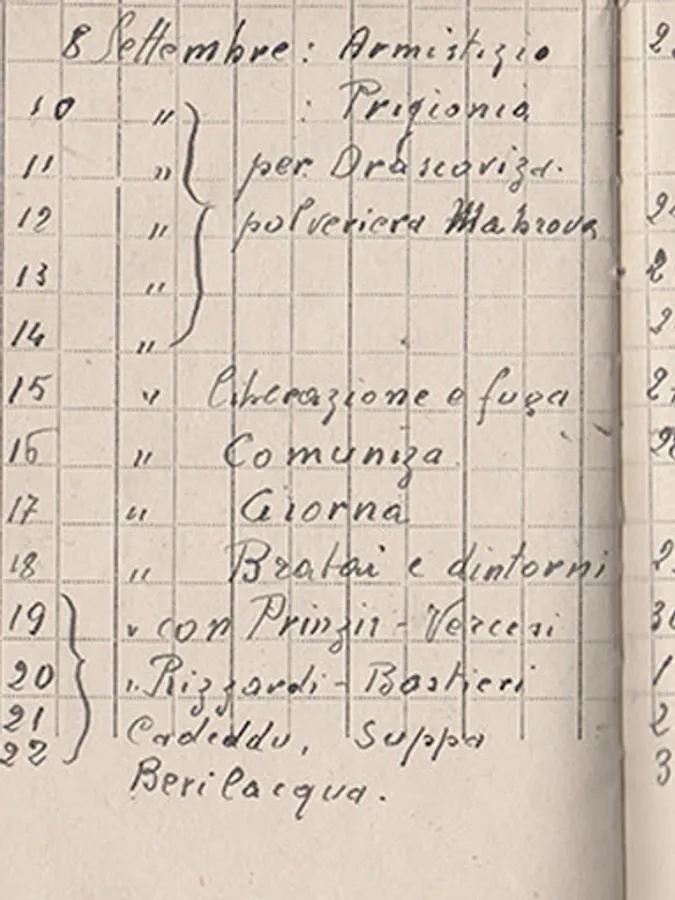 8 Settembre : Armistizio
10 " : Prigionia
11 " per Drascoviza.
12 " polveriera Mabrova
13 "
14 "
15 " liberazione e fuga
16 " Comuniza
17 " Giorna
18 " Bratai e dintorni
19 " con Prinzis - Vercesi
20 " Rizzardi - Bastieri
21 Cadeddu, Suppa
22 Berilacqua.